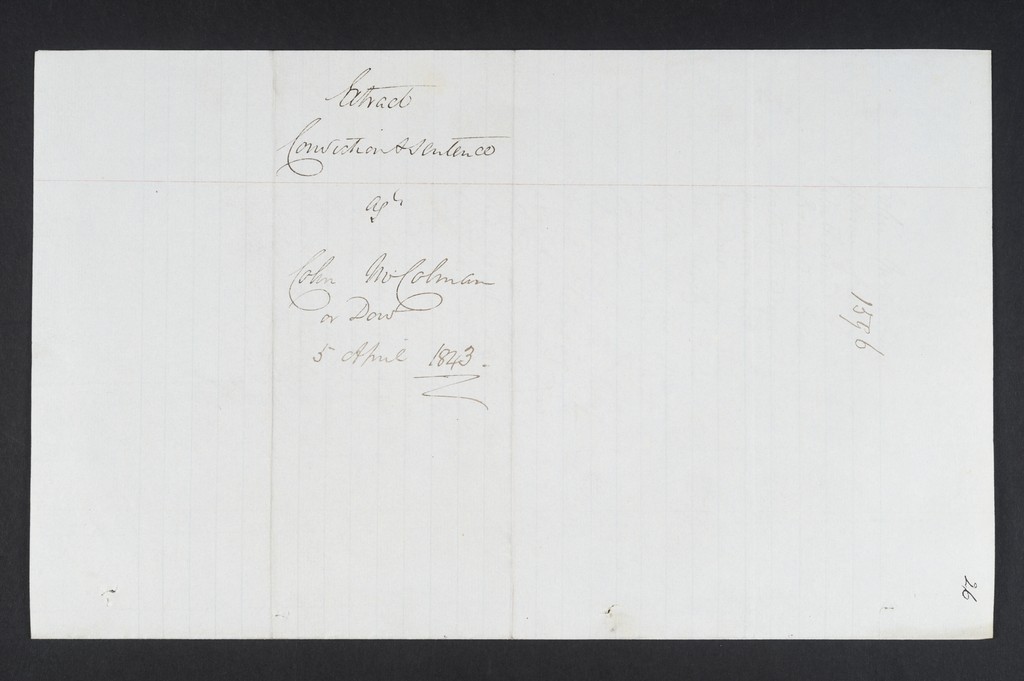 Extract
Conviction & sentence
agt
Colin McColman
or Dow
5 April 1843.
1556
26